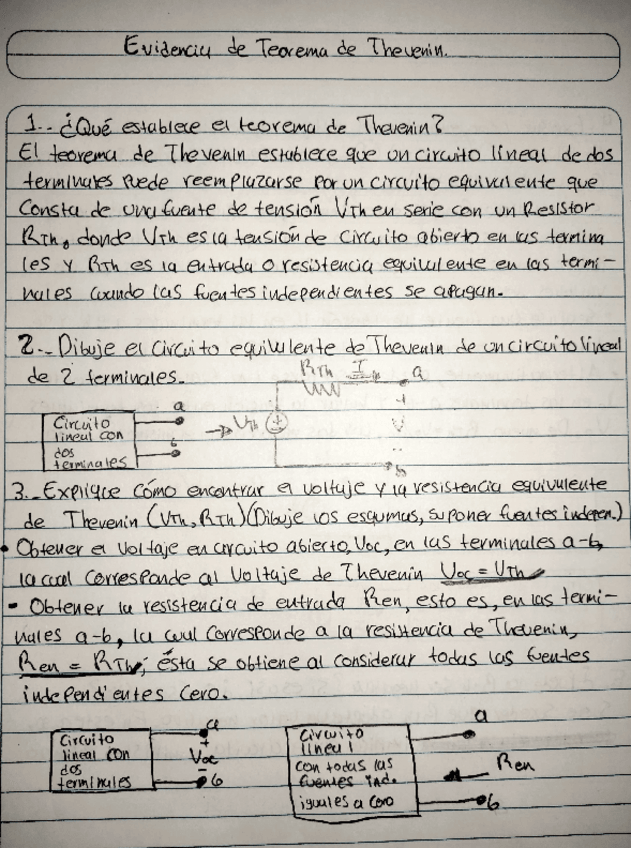 Evidencia de Teorema de Thevenin.
1.- ¿Qué establece el teorema de Thevenin?
El teorema de Thevenin establece que un circuito lineal de dos
terminales puede reemplazarse por un circuito equivalente que
Consta de una fuente de tensión VTh en serie con un Resistor
RTh, donde VTh es la tensión de circuito abierto en las termina
les y RTh es la entrada o resistencia equivalente en las termi-
nales cuando las fuentes independientes se apagan.
2.- Dibuje el circuito equivalente de Thevenin de un circuito lineal
de 2 terminales.
RTh I a
Circuito
lineal con
dos
terminales
a
b
VTh
+
V
-
b
3.- Explique cómo encontrar el voltaje y la resistencia equivalente
de Thevenin (VTh, RTh) (Dibuje los esqumas, suponer fuentes indepen.)
• Obtener el Voltaje en circuito abierto, Voc, en las terminales a-b,
la cual corresponde al Voltaje de Thevenin Voc = VTh
- Obtener la resistencia de entrada Ren, esto es, en las termi-
nales a-b, la cual corresponde a la resistencia de Thevenin,
Ren = RTh; ésta se obtiene al considerar todas las fuentes
independientes Cero.
Circuito
lineal con
dos
terminales
a
+
Voc
-
b
Circuito
lineal
con todas las
fuentes ind.
iguales a cero
a
Ren
b